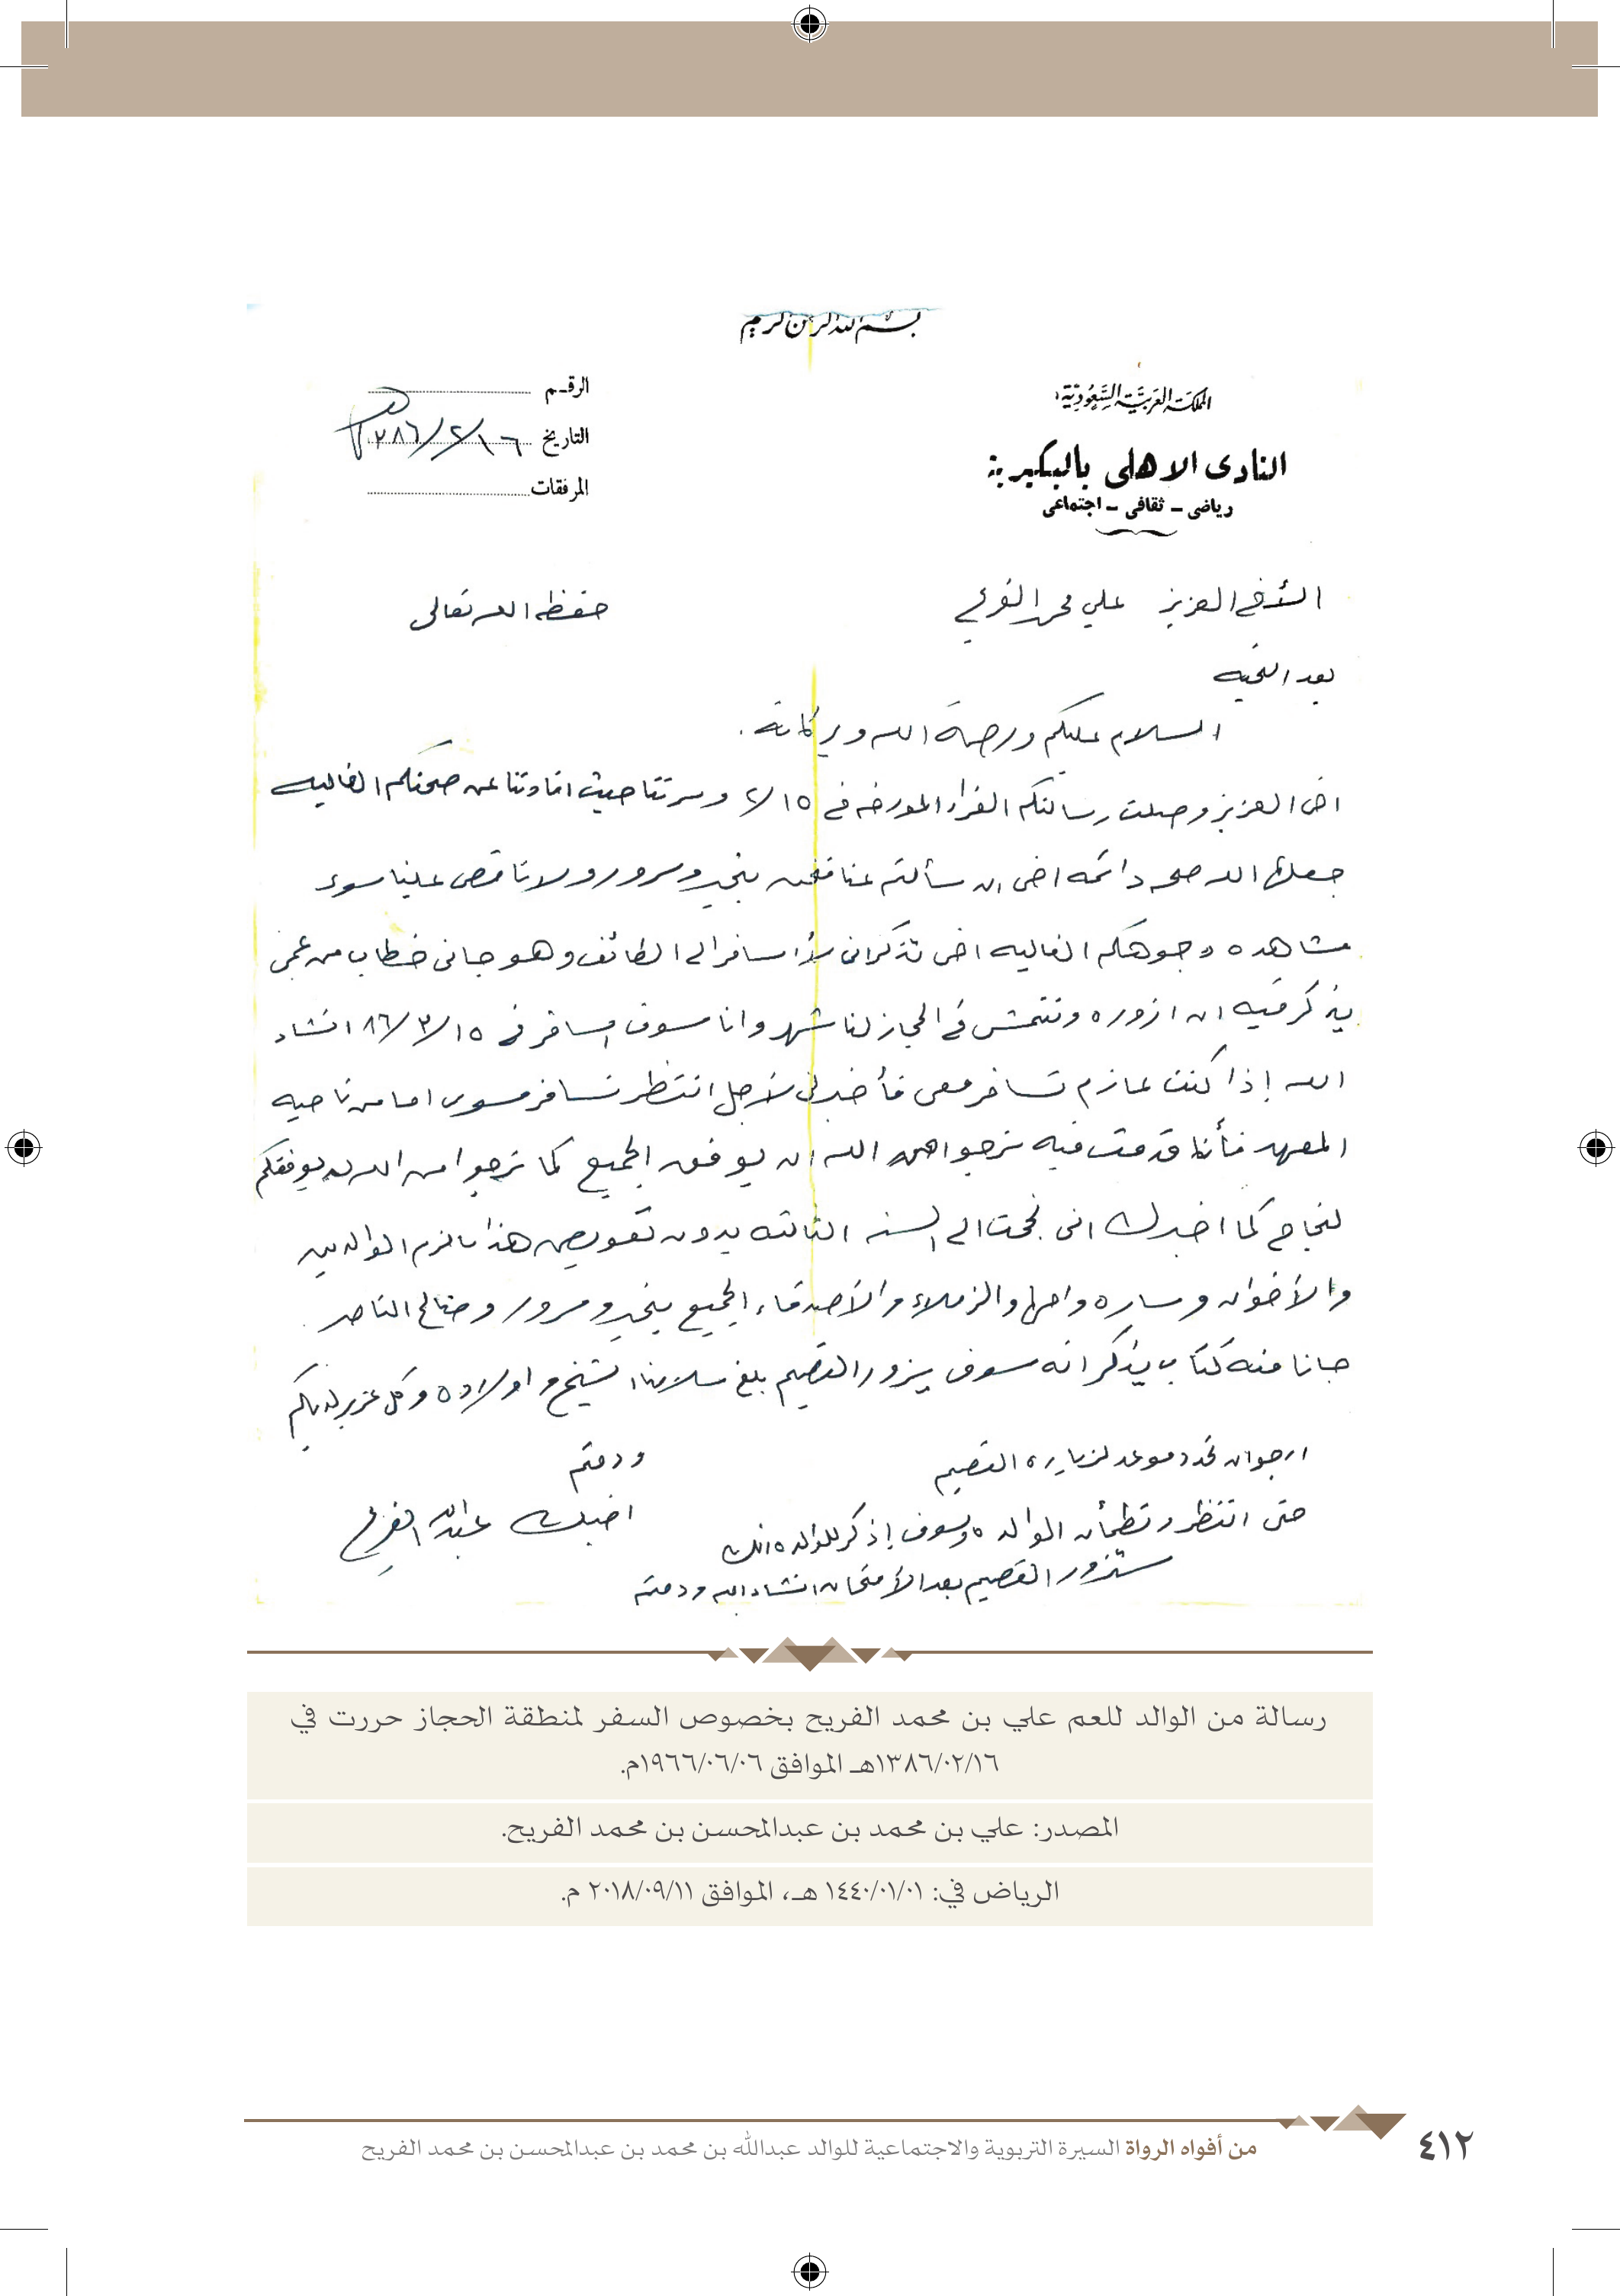 بسم الله الرحمن الرحيم
المملكة العربية السعودية
النادى الاهلى بالبكيرية
رياضى – ثقافى – اجتماعى
الرقم
التاريخ ١٦/٢/٣٨٦
المرفقات
الأخ العزيز علي محمد الفريح حفظه الله تعالى
بعد التحيه
السلام عليكم ورحمة الله وبركاته .
اخى العزيز وصلت رسالتكم الغراء المورخه في ١٥/٢ وسرتنا حيث افادتنا عن صحتكم الغاليه
جعلها الله صحه دائمه اخى ان سألتم عنا فنحن بخير وسرور ولا ناقص علينا سوى
مشاهده وجوهكم الغاليه اخى تذكر انى مسافر الى الطائف وهو جانى خطاب من
يذكر فيه ان ازوره ونتمشى في الحجاز لنا شهر وانا سوف اسافر في ١٥/٣/٨٦ انشاء
الله إذا كنت عازم تسافر معى فأخبرنى لأجل انتظر نسافر سوى اما من ناحيه
المعهد فأنا قدمت فيه نرجوا من الله ان يوفق الجميع كما نرجوا من الله ان يوفقكم
لنجاح كما اخبرك انى نجحت الى السنه الثالثه بدون تعويض هذا مالزم الوالدين
والأخوان وساره وامها والزملاء والأصدقاء الجميع بخير وسرور وصالح الناصر .
جانا منه كتاب يذكر انه سوف يزور القصيم بلغ سلامنا الشيخ و اولاده وكل عزيز لديكم
ارجو ان تحدد موعد لزياره القصيم ودمتم
حتى انتظر وتطمأن الوالده وسوف إذكر للوالده انك
اخيك عبدالله الفريح
ستزور القصيم بعد الأمتحان انشاء الله ودمتم
رسالة من الوالد للعم علي بن محمد الفريح بخصوص السفر لمنطقة الحجاز حررت في
١٣٨٦/٠٢/١٦هـ الموافق ١٩٦٦/٠٦/٠٦م.
المصدر: علي بن محمد بن عبدالمحسن بن محمد الفريح.
الرياض في: ١٤٤٠/٠١/٠١ هـ، الموافق ٢٠١٨/٠٩/١١ م.
من أفواه الرواة السيرة التربوية والاجتماعية للوالد عبدالله بن محمد بن عبدالمحسن بن محمد الفريح
٤١٢